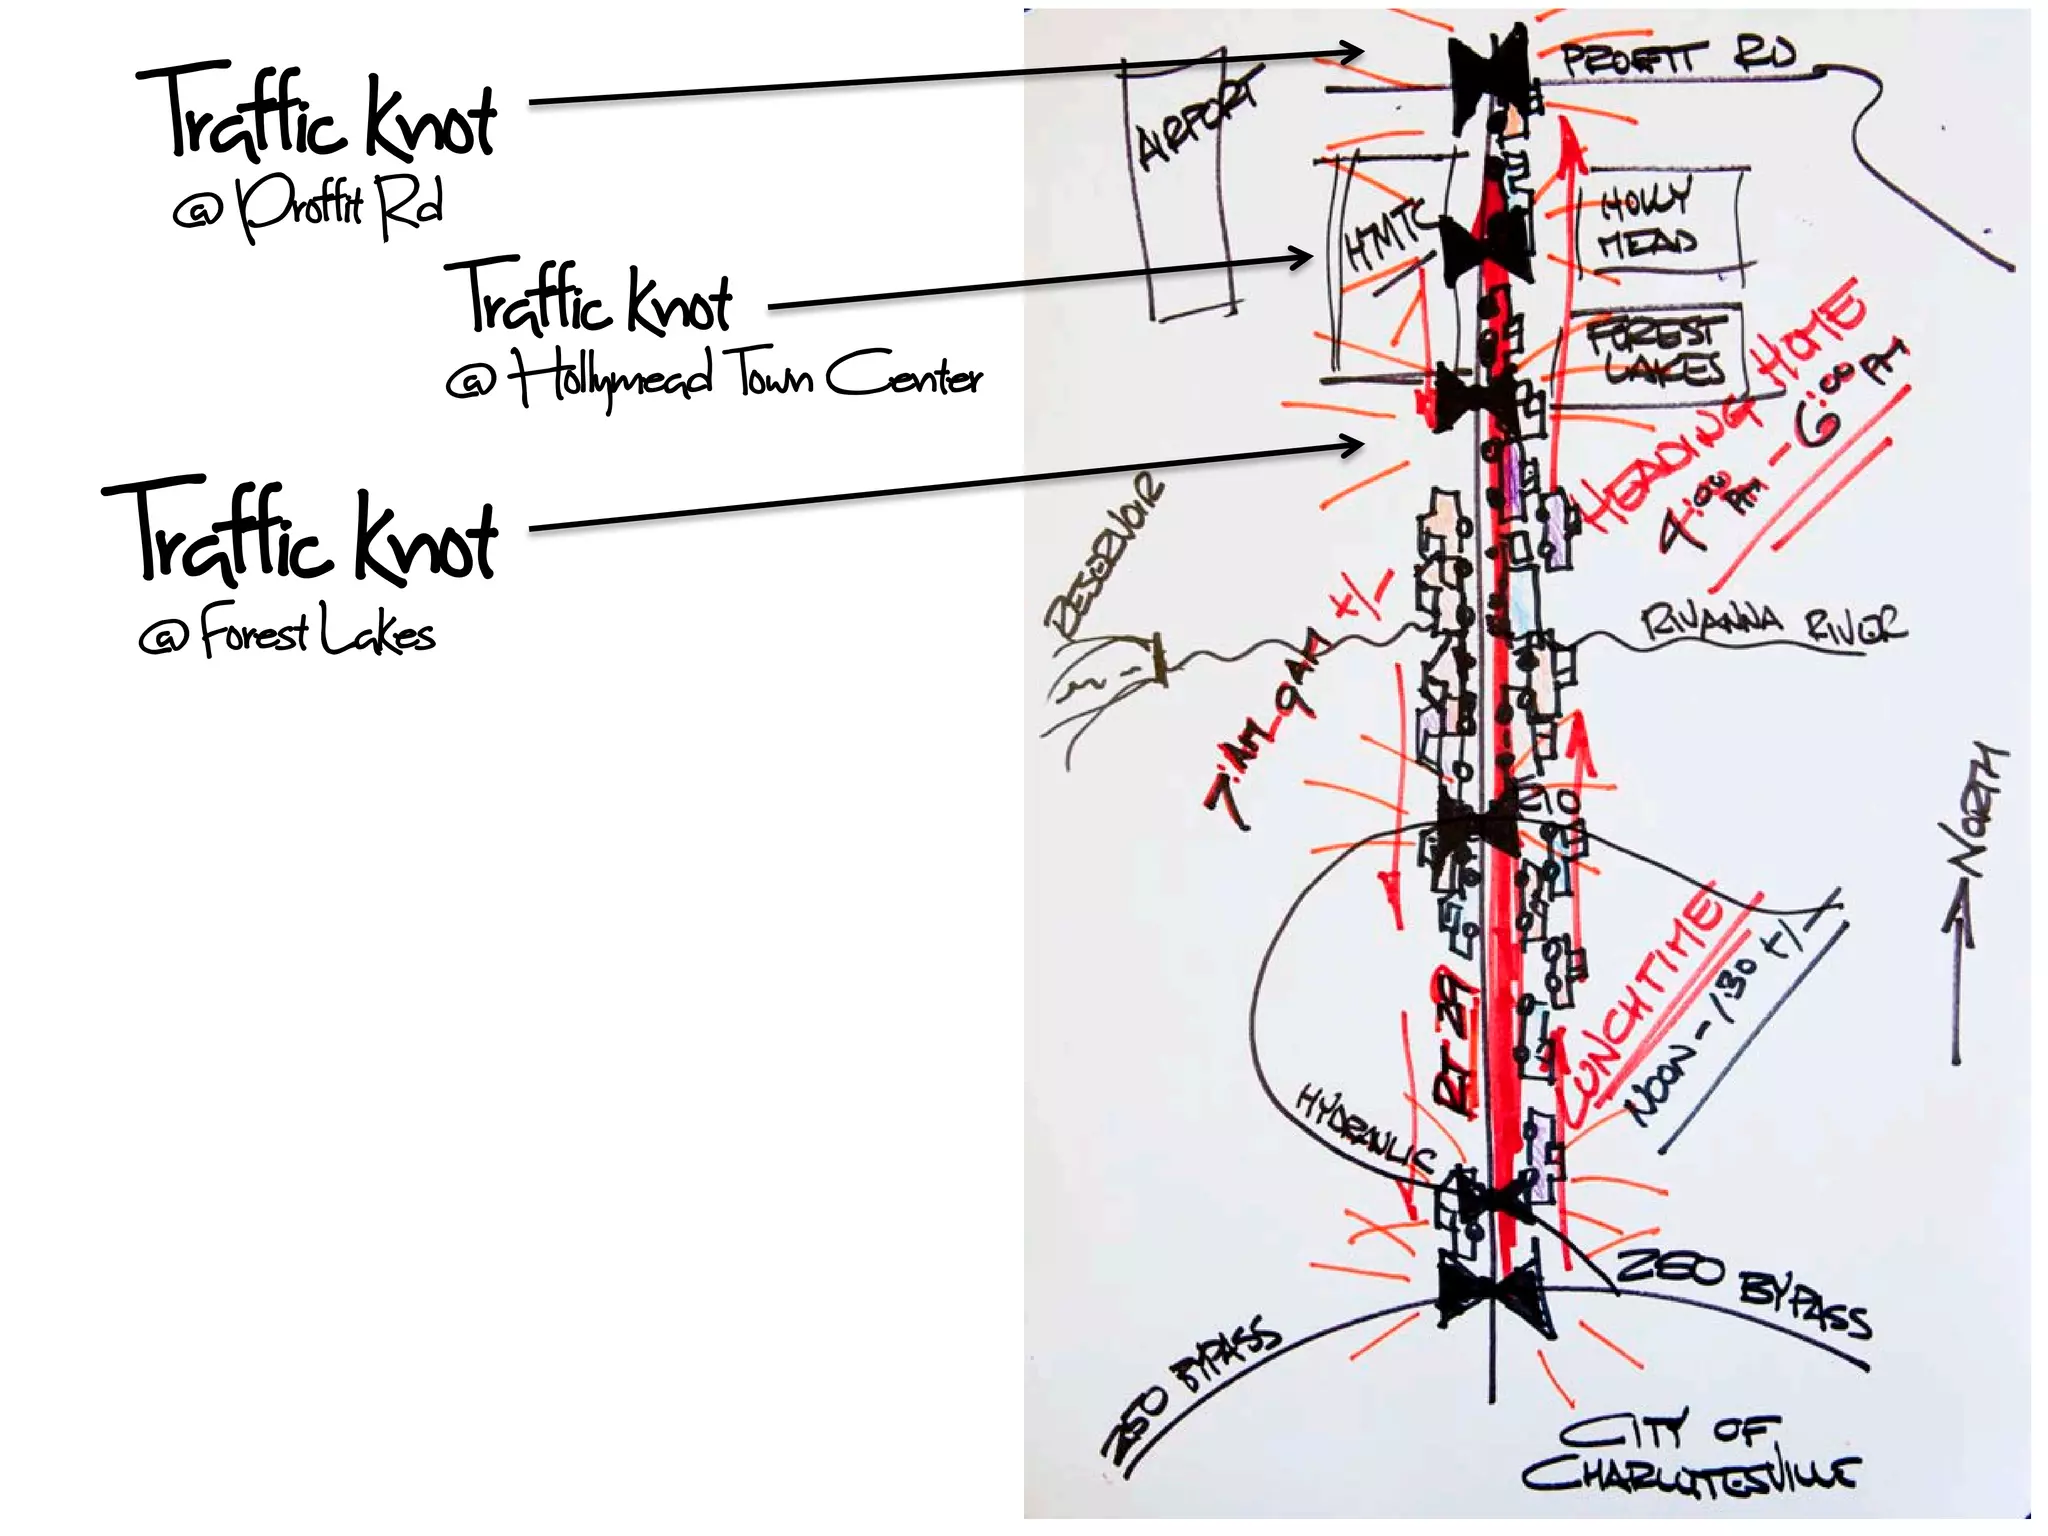 Traffic Knot
@ Proffit Rd
Traffic Knot
@ Hollymead Town Center
Traffic Knot
@ Forest Lakes
PROFIT RD
AIRPORT
HMTC
HOLLY
MEAD
FOREST
LAKES
HEADING HOME
4:00 PM - 6:00 PM
RESERVOIR
7:AM - 9 AM +/-
RIVANNA RIVER
RIO
NORTH
RT 29
LUNCHTIME
NOON - 130 +/-
HYDRAULIC
250 BYPASS
250 BYPASS
CITY OF
CHARLOTTESVILLE